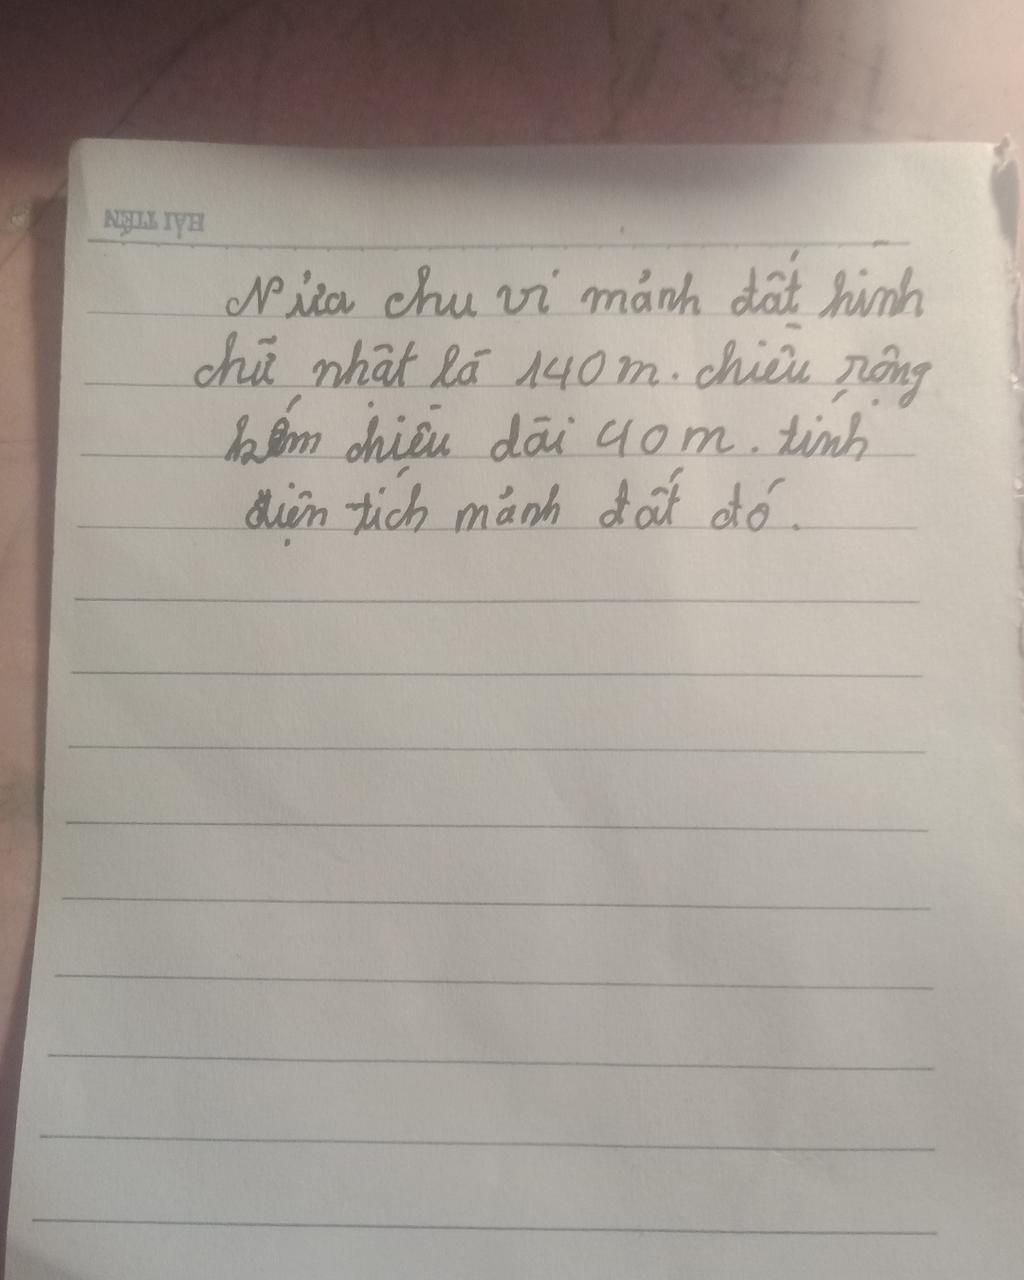 HẢI TIẾN
Nửa chu vi mảnh đất hình
chữ nhật là 140m. chiều rộng
kém chiều dài 40m. tính
diện tích mảnh đất đó.